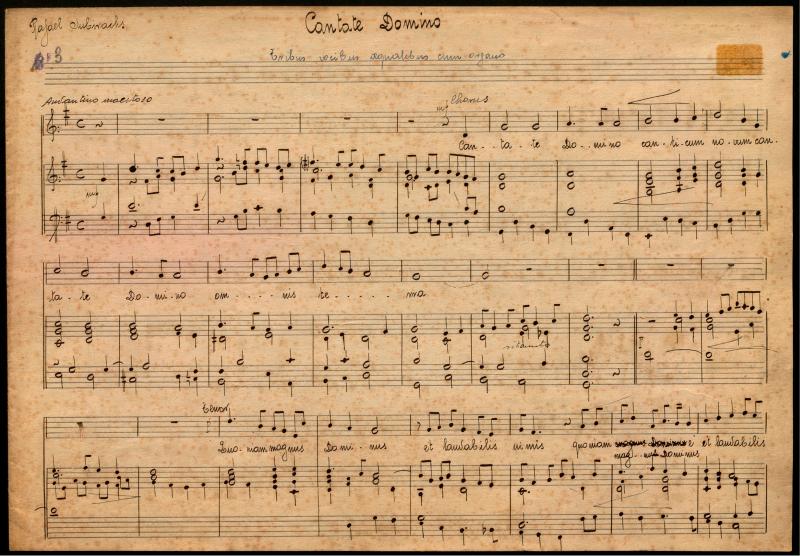 Cantate Domino
Rafael
Nº 3
Tribus vocibus aequalibus cum organo
Andantino maestoso
mf Chorus
Can - ta - te Do - mi no can - ti - cum no - vum can -
mf
ta - te Do - mi - no om - nis te - rra
Tenor
Quo - niam magnus Domi - nus et laudabilis nimis quoniam magnus Dominus et laudabilis
mag - nus Dominus